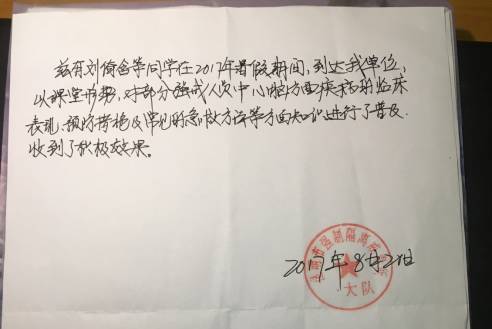 兹有刘倚含等同学在2017年暑假期间,到达我单位,
以课堂形势,对部分强戒人员中心脑方面疾病的临床
表现、预防措施及常见的急救方法等方面知识进行了普及,
收到了积极效果。
2017年8月2日
强制隔离戒
大队